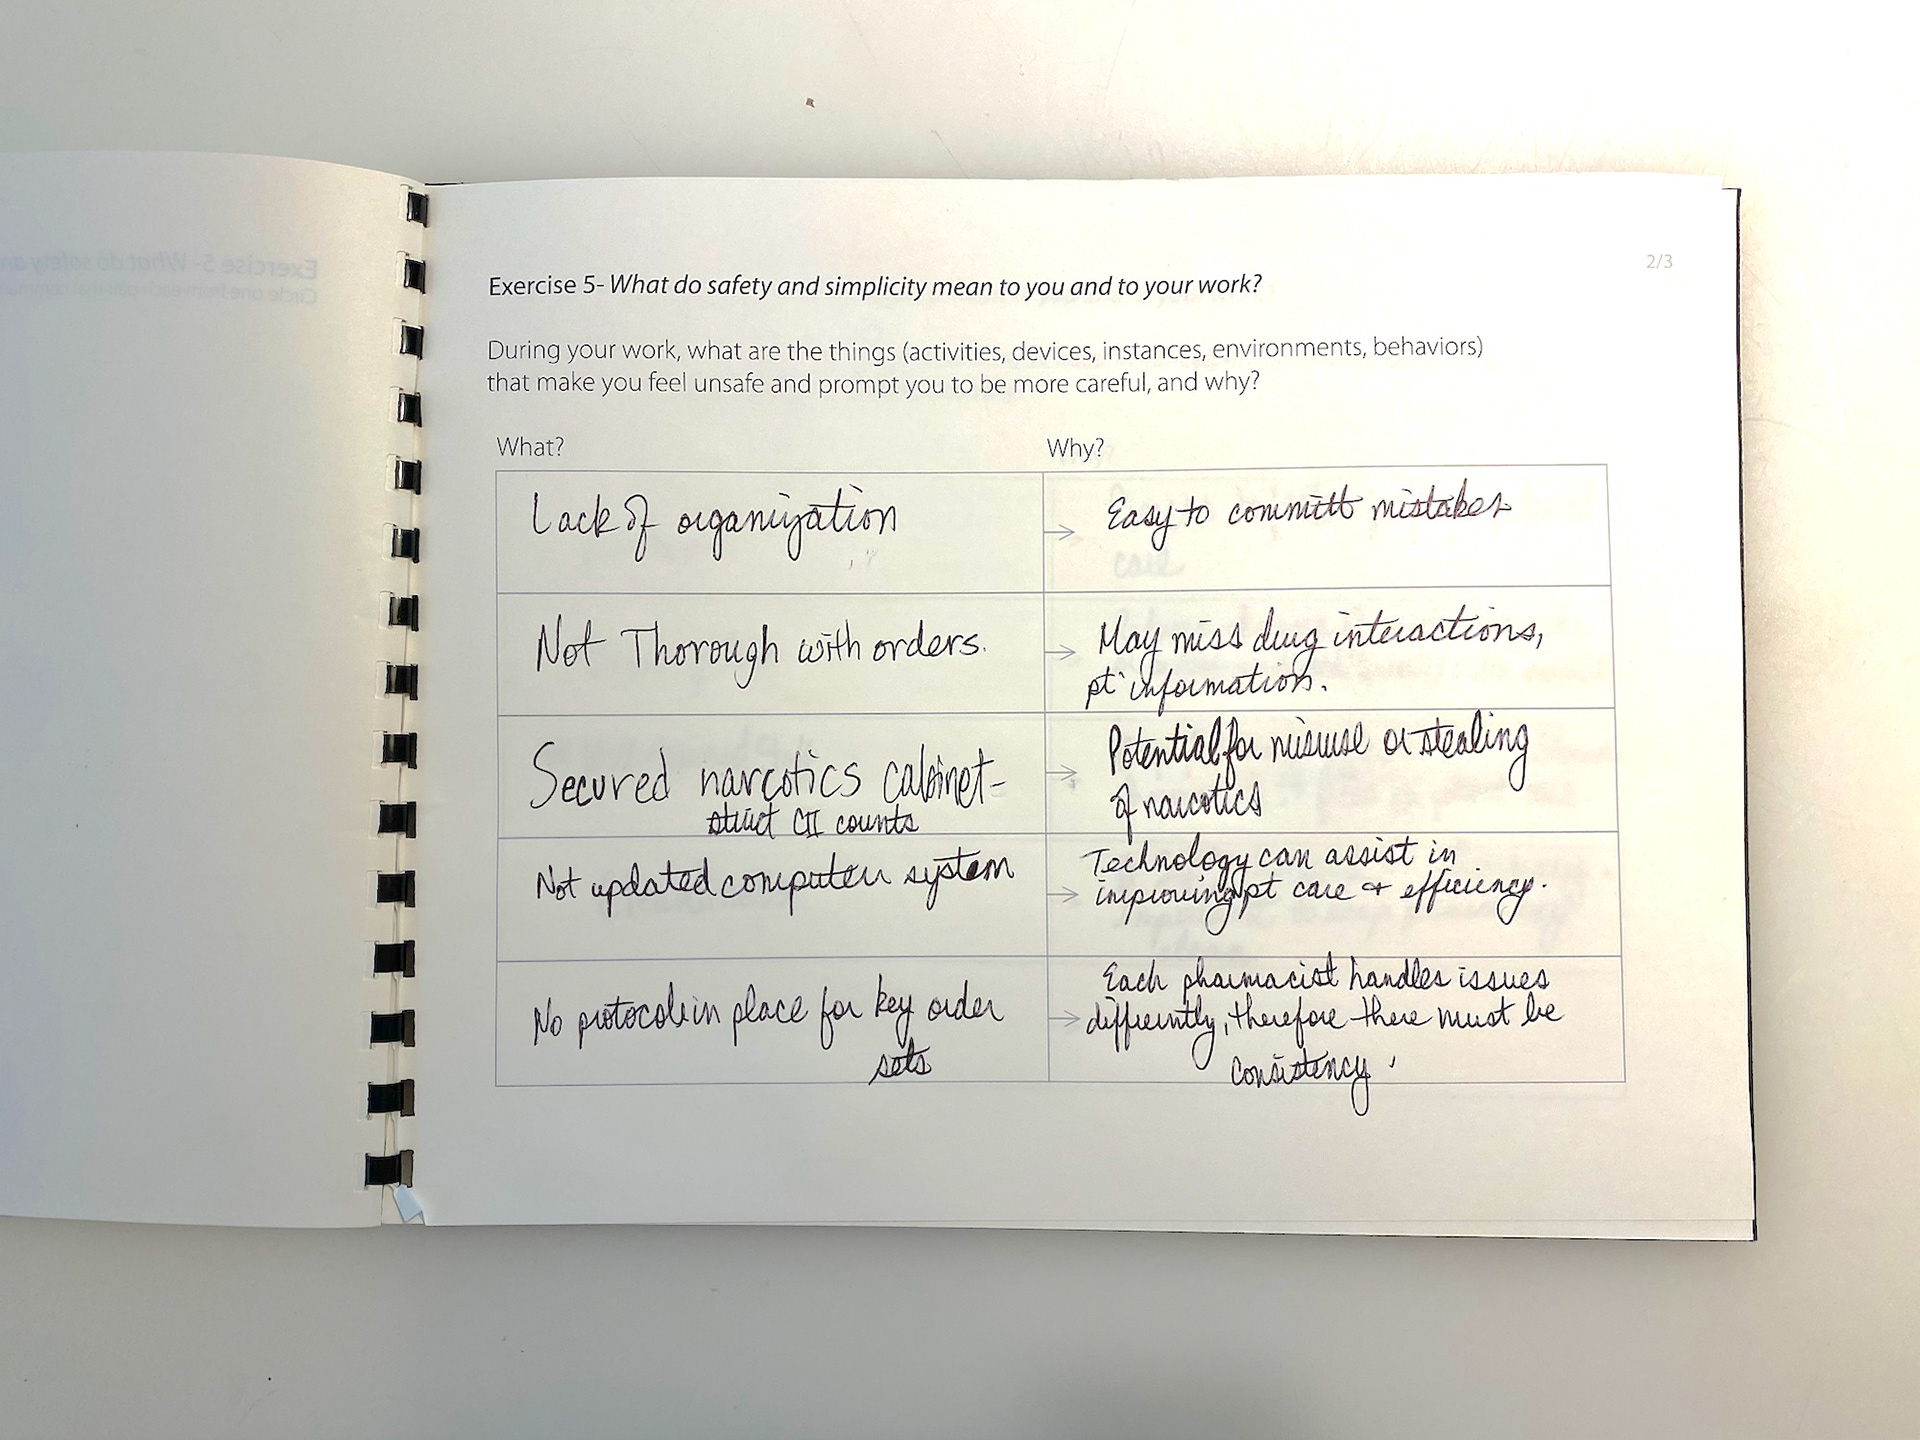 2/3
Exercise 5- What do safety and simplicity mean to you and to your work?
During your work, what are the things (activities, devices, instances, environments, behaviors)
that make you feel unsafe and prompt you to be more careful, and why?
What?
Why?
Lack of organization
Easy to committ mistakes
Not Thorough with orders.
May miss drug interactions,
pt information.
Secured narcotics cabinet-
strict CII counts
Potential for misuse or stealing
of narcotics
Not updated computer system
Technology can assist in
improving pt care & efficiency.
No protocols in place for key order
sets
Each pharmacist handles issues
differently, therefore there must be
consistency.
Exercise 5- What do safety an
Circle one from each pair that